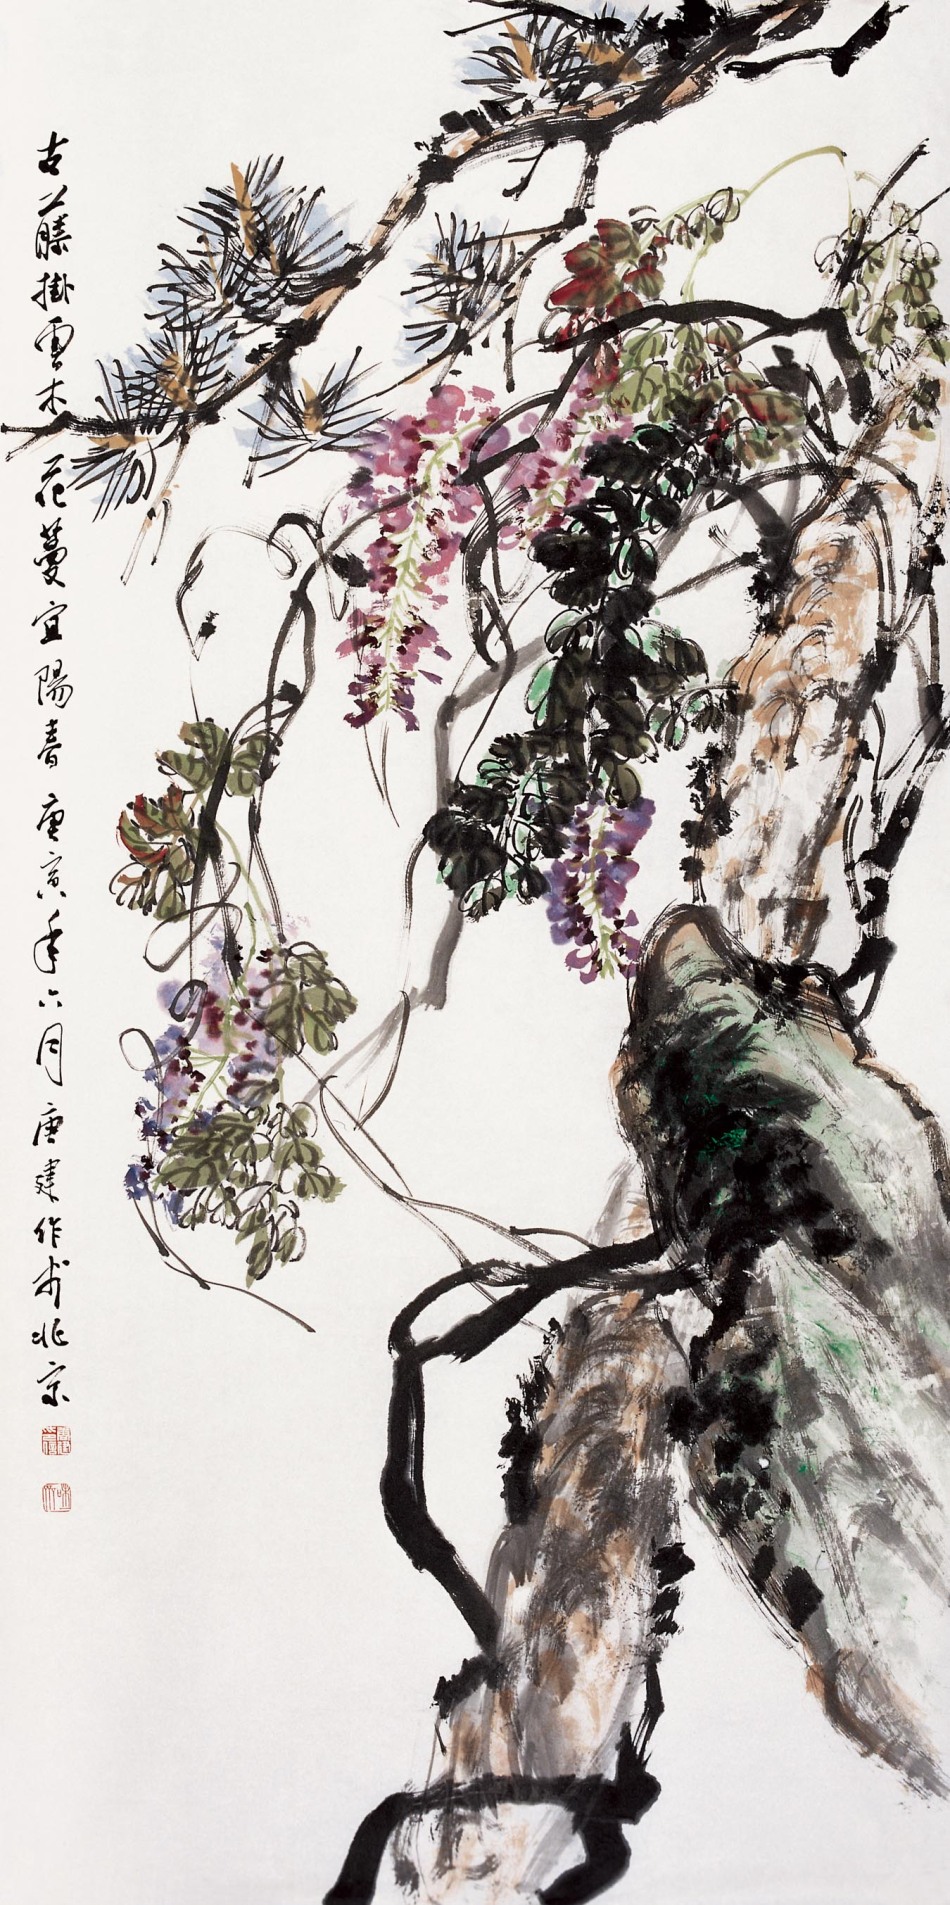 古藤掛雲木花蔓宜陽春庚寅年六月唐建作於北京